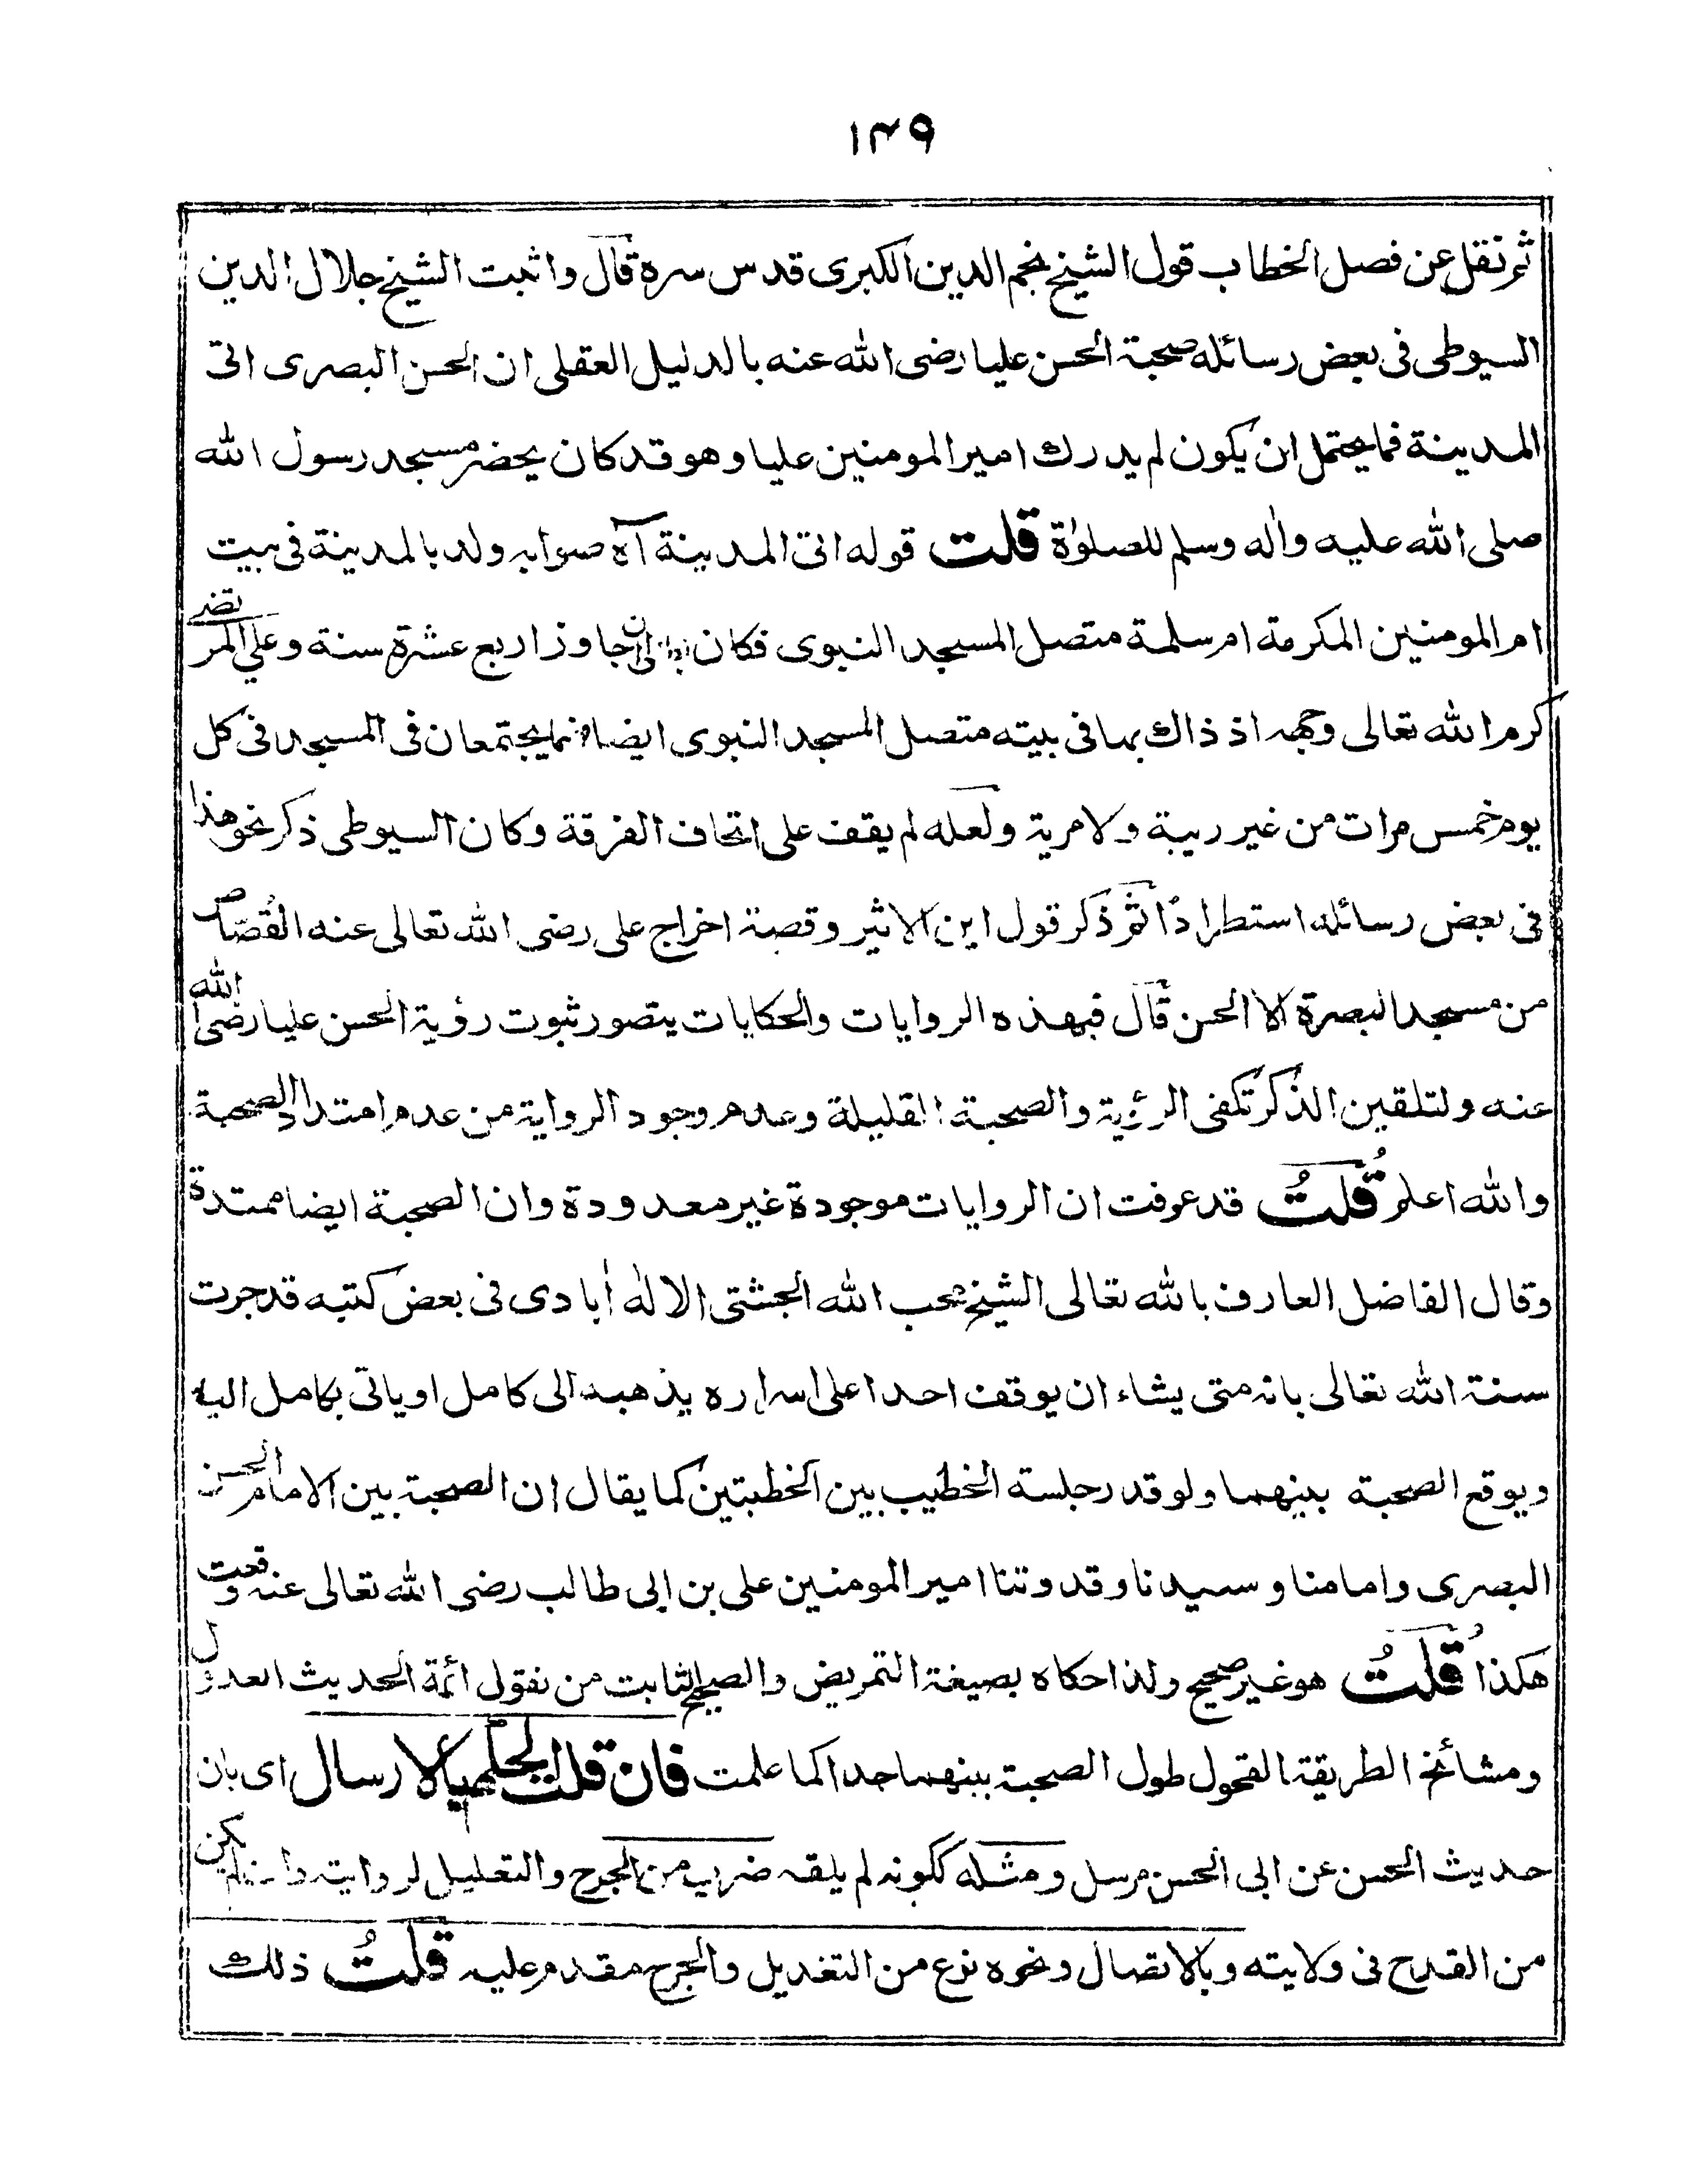 ١٣٩
ثم نقل عن فصل الخطاب قول الشيخ نجم الدين الكبرى قدس سره قال واثبت الشيخ جلال الدين
السيوطى فى بعض رسائله صحبة الحسن عليا رضى الله عنه بالدليل العقلى ان الحسن البصرى اتى
المدينة فما يحتمل ان يكون لم يدرك امير المومنين عليا وهو قد كان يحضر مسجد رسول الله
صلى الله عليه واٰله وسلم للصلوٰة قلت قوله اتى المدينة آه صوابه ولد بالمدينة فى بيت
ام المومنين المكرمة ام سلمة متصل المسجد النبوى فكان الى ان جاوز اربع عشرة سنة وعلي المرتضى
كرم الله تعالى وجهه اذ ذاك بها فى بيته متصل المسجد النبوى ايضا فما يجتمعان فى المسجد فى كل
يوم خمس مرات من غير ريبة ولا مرية ولعله لم يقف على اتحاف الفرقة وكان السيوطى ذكر نحو هذا
فى بعض رسائله استطرادًا ثم ذكر قول ابن الاثير وقصة اخراج على رضى الله تعالى عنه القُصّاص
من مسجد البصرة الا الحسن قال فبهذه الروايات والحكايات يتصور ثبوت رؤية الحسن عليا رضى الله
عنه ولتلقين الذكر تكفى الرؤية والصحبة القليلة وعدم وجود الرواية من عدم امتداد الصحبة
والله اعلم قُلتُ قد عرفت ان الروايات موجودة غير معدودة وان الصحبة ايضا ممتدة
وقال الفاضل العارف بالله تعالى الشيخ محب الله الجشتى الالٰه أبادى فى بعض كتبه قد جرت
سنة الله تعالى بانه متى يشاء ان يوقف احدا على اسراره يذهبه الى كامل او ياتى بكامل اليه
ويوقع الصحبة بينهما ولو قدر جلسة الخطيب بين الخطبتين كما يقال ان الصحبة بين الامام الحسن
البصرى وامامنا وسيدنا وقدوتنا امير المومنين على بن ابى طالب رضى الله تعالى عنه وقعت
هكذا قُلتُ هو غير صحيح ولذا حكاه بصيغة التمريض والصحيح الثابت من نقول ائمة الحديث العدول
ومشائخ الطريقة الفحول طول الصحبة بينهما جدا كما علمت فان قلت الحكم بالارسال اى بان
حديث الحسن عن ابى الحسن مرسل ومثله ككونه لم يلقه ضرب من الجرح والتعليل لروايته وان لم يكن
من القدح فى ولايته وبالاتصال ونحوه نوع من التعديل والجرح مقدم عليه قلتُ ذلك